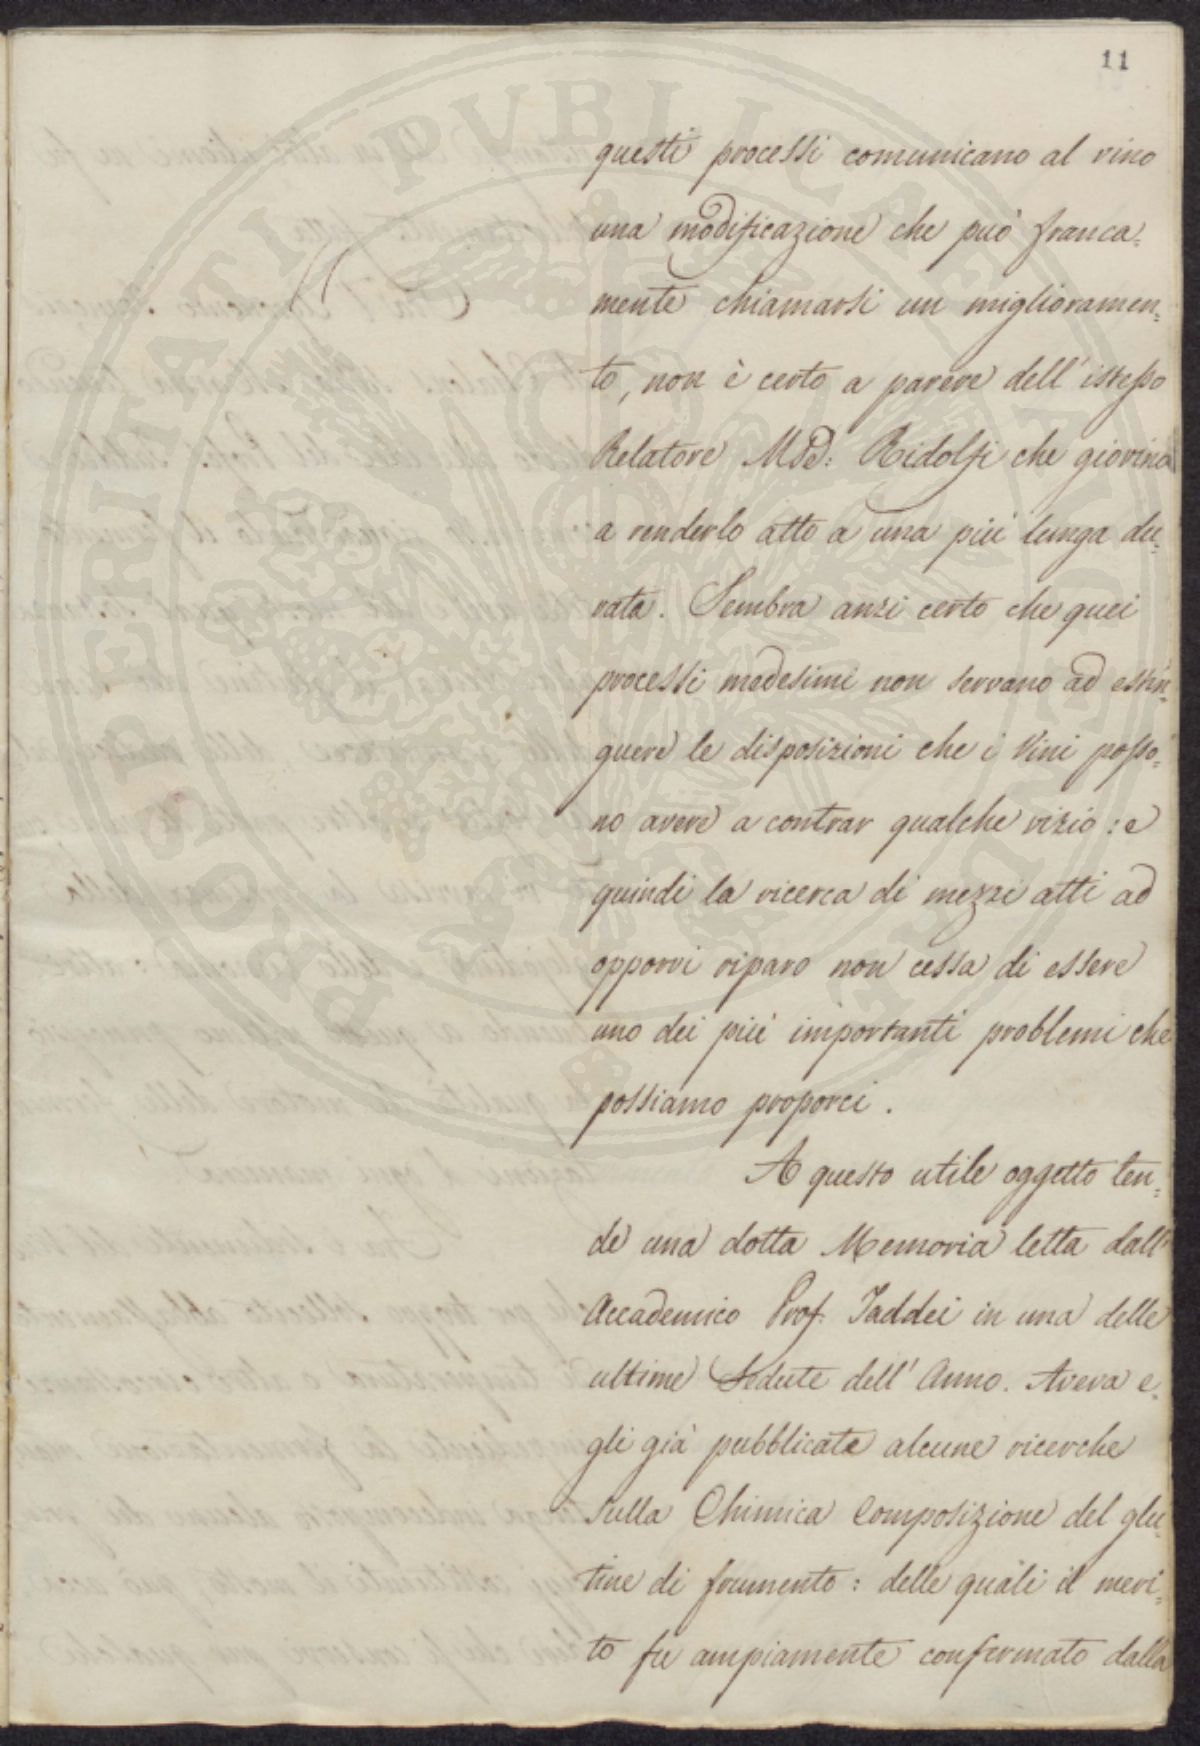 11
questi processi comunicano al vino
una modificazione che può franca=
mente chiamarsi un miglioramen=
to, non è certo a parere dell'istesso
Relatore Mse: Ridolfi che giovino
a renderlo atto a una più lunga du=
rata. Sembra anzi certo che quei
processi medesimi non servano ad estin=
guere le disposizioni che i Vini posso=
no avere a contrar qualche vizio: e
quindi la ricerca di mezzi atti ad
opporvi riparo non cessa di essere
uno dei più importanti problemi che
possiamo proporci.
A questo utile oggetto ten=
de una dotta Memoria letta dall'
Accademico Prof. Taddei in una delle
ultime Sedute dell'Anno. Aveva e=
gli già pubblicate alcune ricerche
sulla Chimica Composizione del glu=
tine di frumento: delle quali il meri=
to fu ampiamente confermato dalla
PROSPERITATI PUBLICAE AUGENDAE